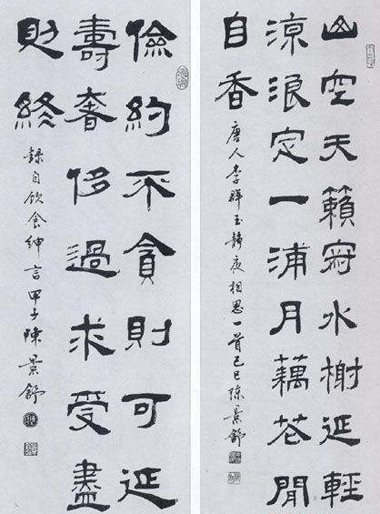 山空天籟寂水榭延輕
涼浪定一浦月藕花聞
自香
唐人李群玉靜夜相思一首己巳陳景舒
儉約不貪則可延
壽奢侈過求受盡
則終
錄自飲食紳言甲子陳景舒